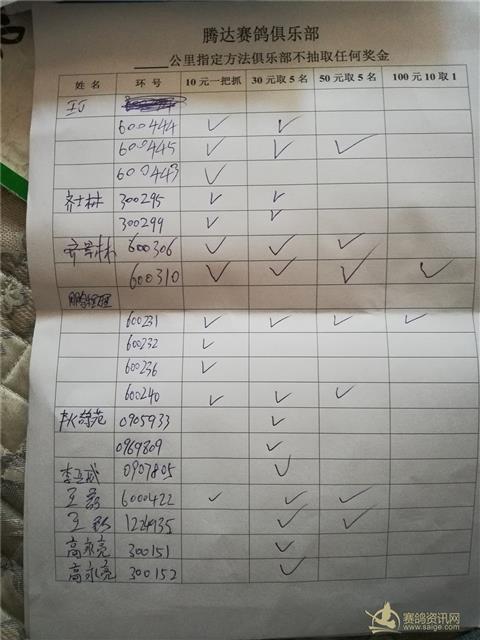 腾达赛鸽俱乐部
____公里指定方法俱乐部不抽取任何奖金
姓名 环号 10元一把抓 30元取5名 50元取5名 100元10取1
600444 ✓ ✓
600445 ✓ ✓ ✓
600443 ✓
300295 ✓ ✓
300299 ✓ ✓
600306 ✓ ✓ ✓
600310 ✓ ✓ ✓ ✓
600231 ✓ ✓ ✓ ✓
600232 ✓
600236 ✓
600240 ✓ ✓ ✓
0905933 ✓
0969809 ✓
0907805 ✓
王磊 6000422 ✓ ✓ ✓
王 1224935 ✓ ✓
高永亮 300151 ✓
高永亮 300152 ✓
赛鸽资讯网
www.saige.com